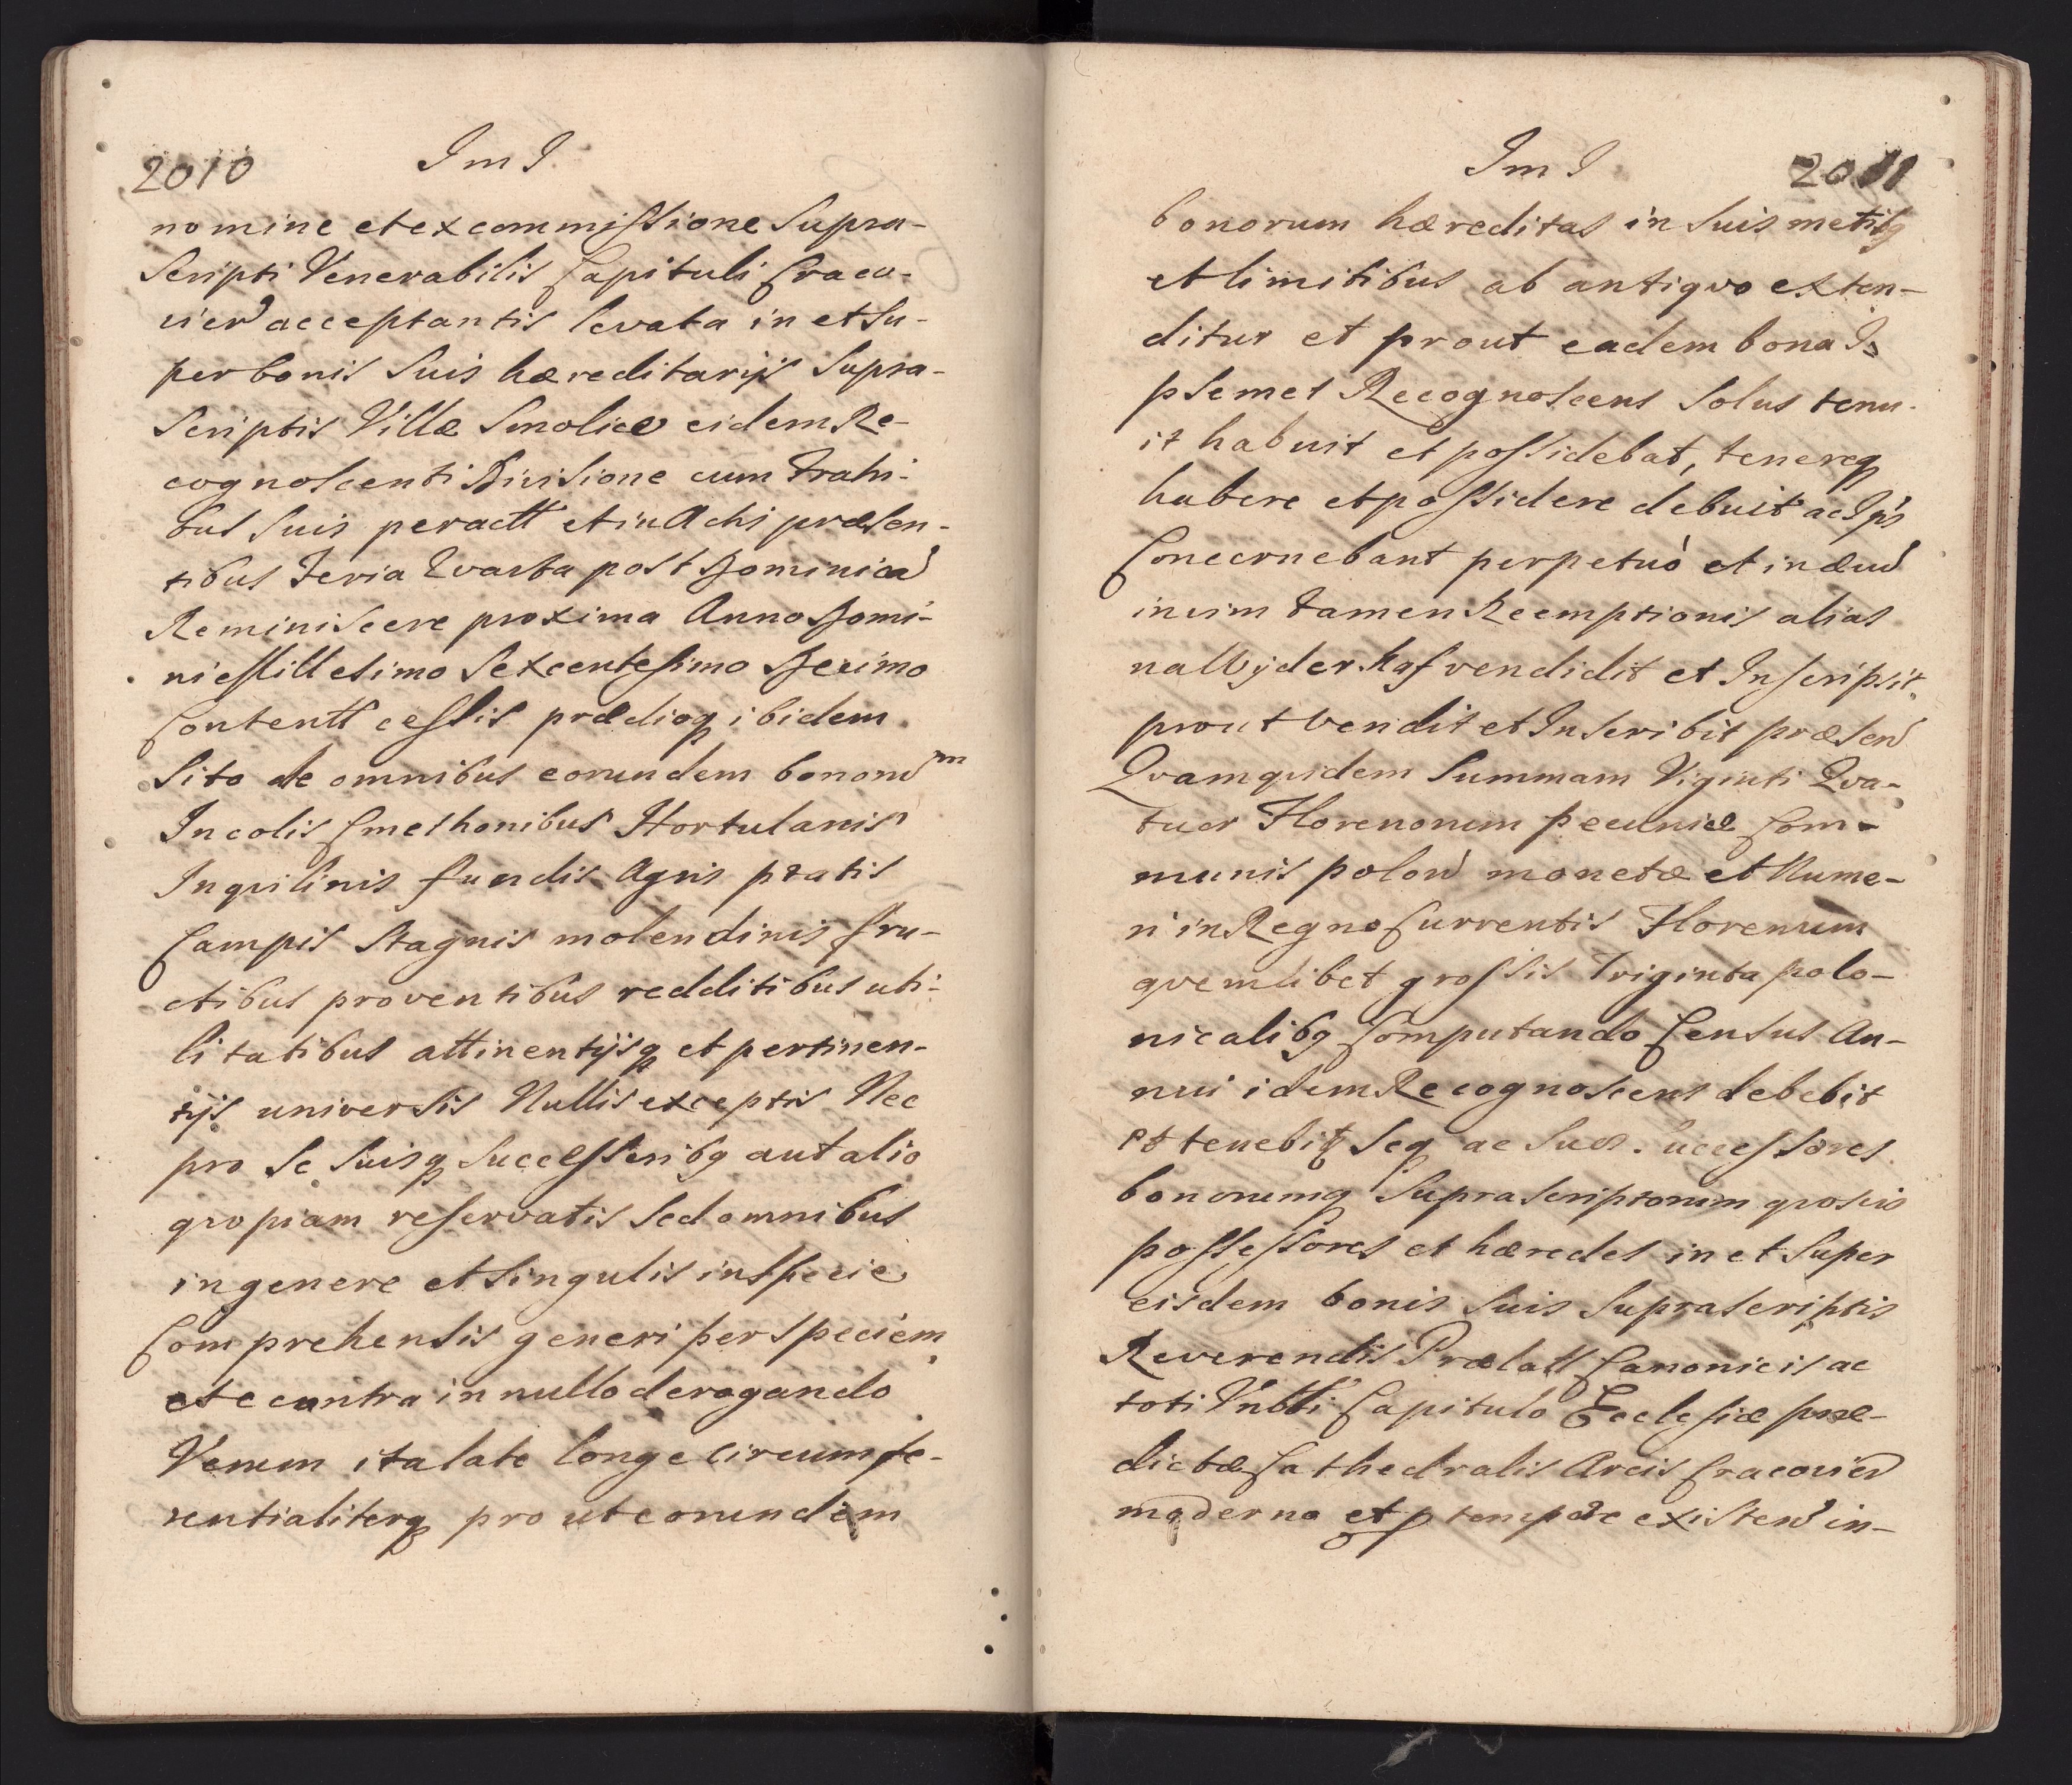 2010
I m I
nomine et ex commissione Supra-
Scripti Venerabilis Capituli Craco-
vien acceptantis levata in et su-
per bonis Suis hæreditarijs Supra-
Scriptis Villæ Smolice eidem Re-
cognoscenti Divisione cum Fratri-
bus Suis peractt et in Actis præsen-
tibus Feria Qvarta post Dominicã
Reminiscere proxima Anno Domi-
ni Millesimo Sexcentesimo Decimo
Contentt cessis prædioq ibidem
Sito de omnibus eorundem bonorum
Incolis Cmethonibus Hortulanis
Inqvilinis fundis Agris pratis
Campis Stagnis molendinis fru-
ctibus proventibus redditibus uti-
litatibus attinentijsq et pertinen-
tijs universis Nullis exceptis Nec
pro Se Suisq Successoribq aut alio
qvopiam reservatis Sed omnibus
in genere et Singulis in Specie
Comprehensis generi per Speciem
et e contra in nullo derogando
Verum ita late longe circumfe-
rentialiterq prout eorundem
I m I
2011
bonorum hæreditas in Suis metibq
et limitibus ab antiqvo exten-
ditur et prout eadem bona I-
psemet Recognoscens Solus tenu-
it habuit et possidebat, tenereq
habere et possidere debuit ac Ips
Concernebant perpetuò et in ævũ
in vim tamen Reemptionis alias
na Wyderkaf vendidit et Inscripsit
prout vendit et Inscribit præsen
Qvamqvidem Summam Viginti Qva-
tuor Florenorum pecuniæ Com-
munis polon monetæ et Nume-
ri in Regno Currentis Florenum
qvemlibet grossis Triginta polo-
nicalibq Computando Census An-
nui idem Recognoscens debebit
et tenebitq Seq ac Suos Successores
bonorumq Suprascriptorum qvosvis
possessores et hæredes in et Super
eisdem bonis Suis Suprascriptis
Reverendis Prælatt Canonicis ac
toti Vnbli Capitulo Ecclesiæ præ-
dictæ Cathedralis Arcis Cracovien
moderno et p tempore existen in-